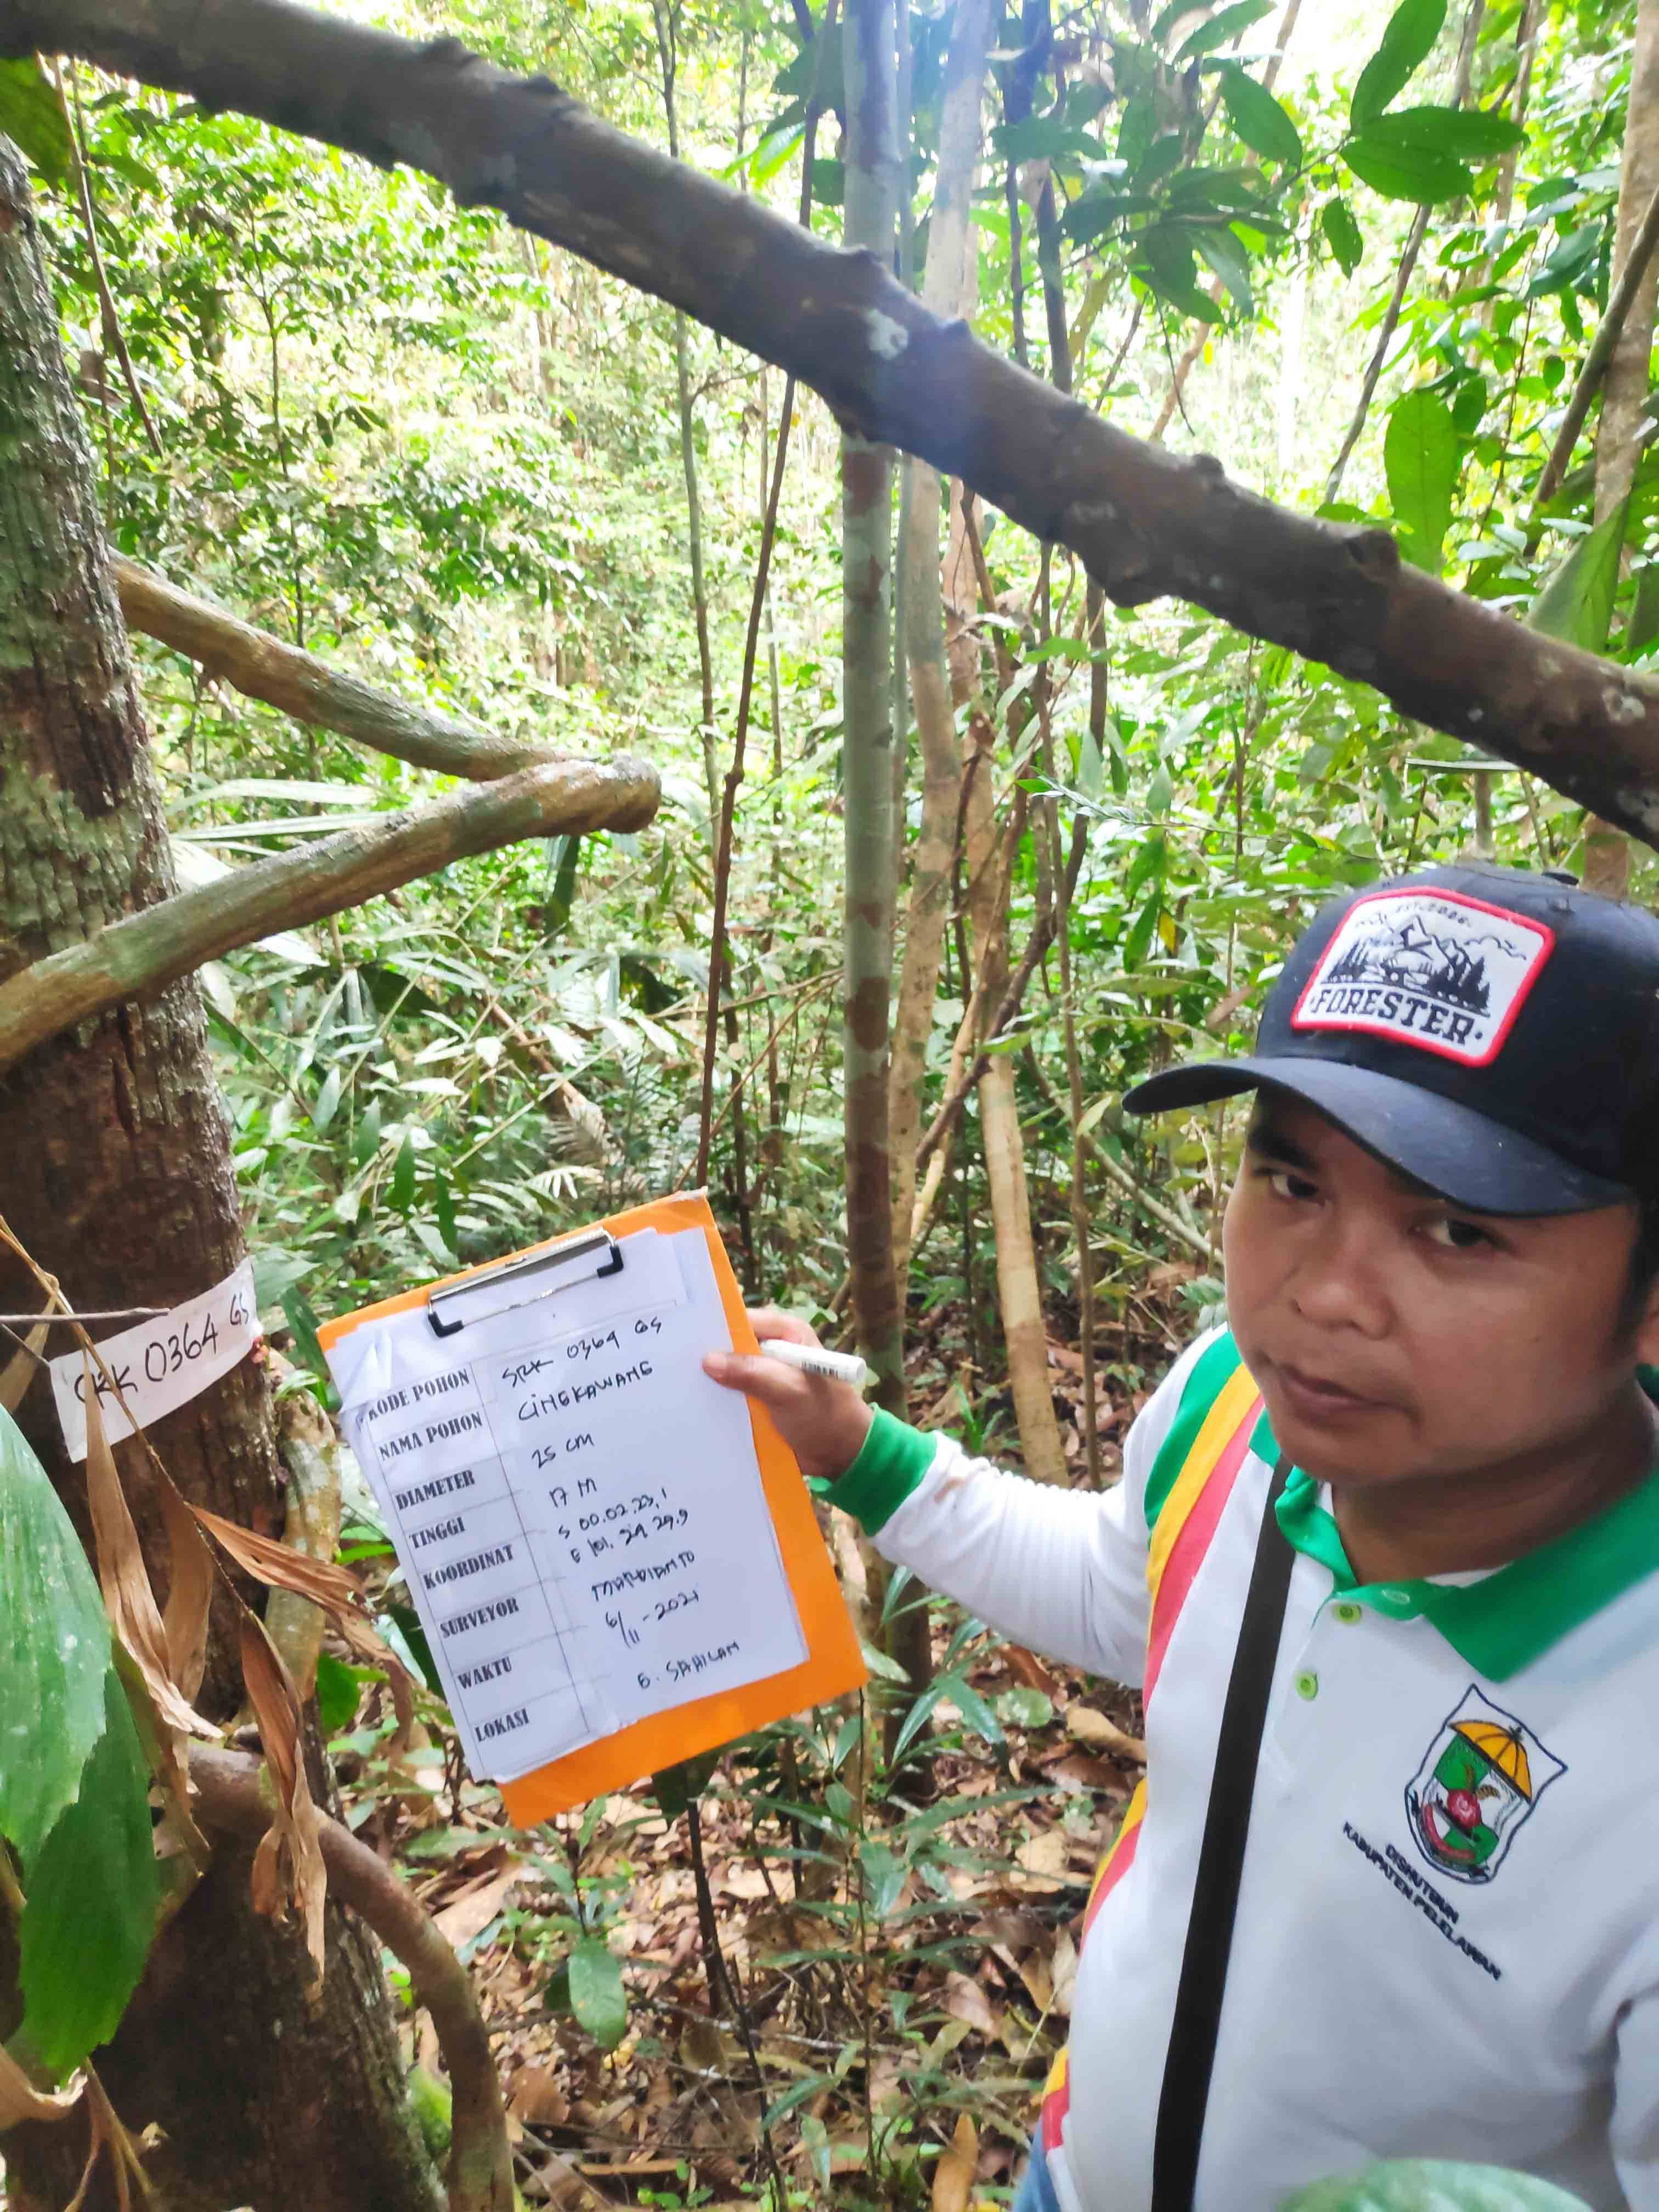 EST. 2006
FORESTER
SRK 0364 GS
KODE POHON SRK 0364 GS
NAMA POHON CINGKAWANG
DIAMETER 25 CM
TINGGI 17 M
KOORDINAT S 00.02.23,1
E 101, 29, 29.9
SURVEYOR MARDIANTO
WAKTU 6/11-2021
LOKASI G. SAHILAN
DISHUTBUN
KABUPATEN PELELAWAN